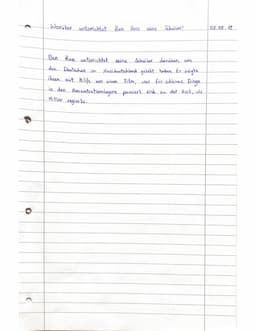 Worüber unterrichtet Ben Ross seine Schüler?
Ben Ross unterrichtet seine Schüler darüber, wie
die Deutschen in Nazideutschland gelebt haben. Er zeigte
ihnen mit Hilfe von einem Film, was für schlimme Dinge
in den Konzentrationslagern passiert sind zu der Zeit, als
Hitler regierte.